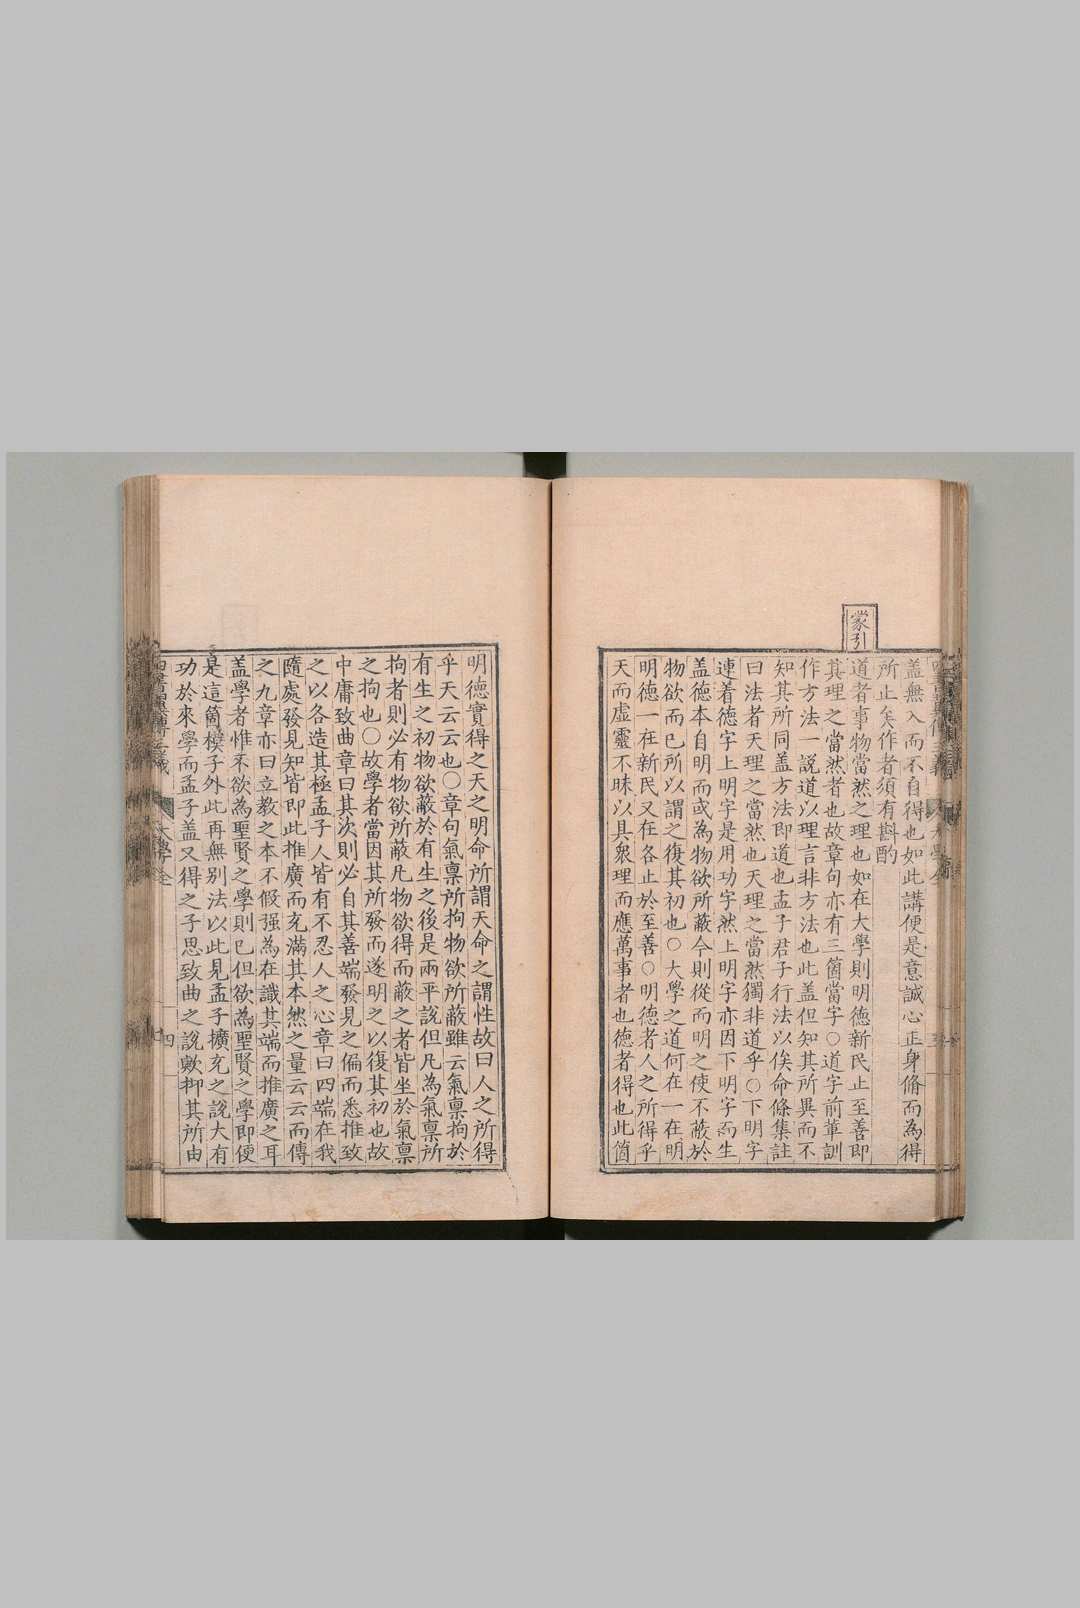 蒙引
盖無入而不自得也如此講便是意誠心正身脩而為得
所止矣作者須有斟酌
道者事物當然之理也如在大學則明德新民止至善即
其理之當然者也故章句亦有三箇當字○道字前軰訓
作方法一說道以理言非方法也此盖但知其所異而不
知其所同盖方法即道也孟子君子行法以俟命條集註
曰法者天理之當然也天理之當然獨非道乎○下明字
連着德字上明字是用功字然上明字亦因下明字而生
盖德本自明而或為物欲所蔽今則從而明之使不蔽於
物欲而已所以謂之復其初也○大學之道何在一在明
明德一在新民又在各止於至善○明德者人之所得乎
天而虛靈不昧以具衆理而應萬事者也德者得也此箇
明德實得之天之明命所謂天命之謂性故曰人之所得
乎天云云也○章句氣禀所拘物欲所蔽雖云氣禀拘於
有生之初物欲蔽於有生之後是兩平說但凡為氣禀所
拘者則必有物欲所蔽凡物欲得而蔽之者皆坐於氣禀
之拘也○故學者當因其所發而遂明之以復其初也故
中庸致曲章曰其次則必自其善端發見之偏而悉推致
之以各造其極孟子人皆有不忍人之心章曰四端在我
隨處發見知皆即此推廣而充滿其本然之量云云而傳
之九章亦曰立教之本不假强為在識其端而推廣之耳
盖學者惟不欲為聖賢之學則已但欲為聖賢之學即便
是這箇模子外此再無别法以此見孟子擴充之說大有
功於來學而孟子盖又得之子思致曲之說歟抑其所由
大學全
四